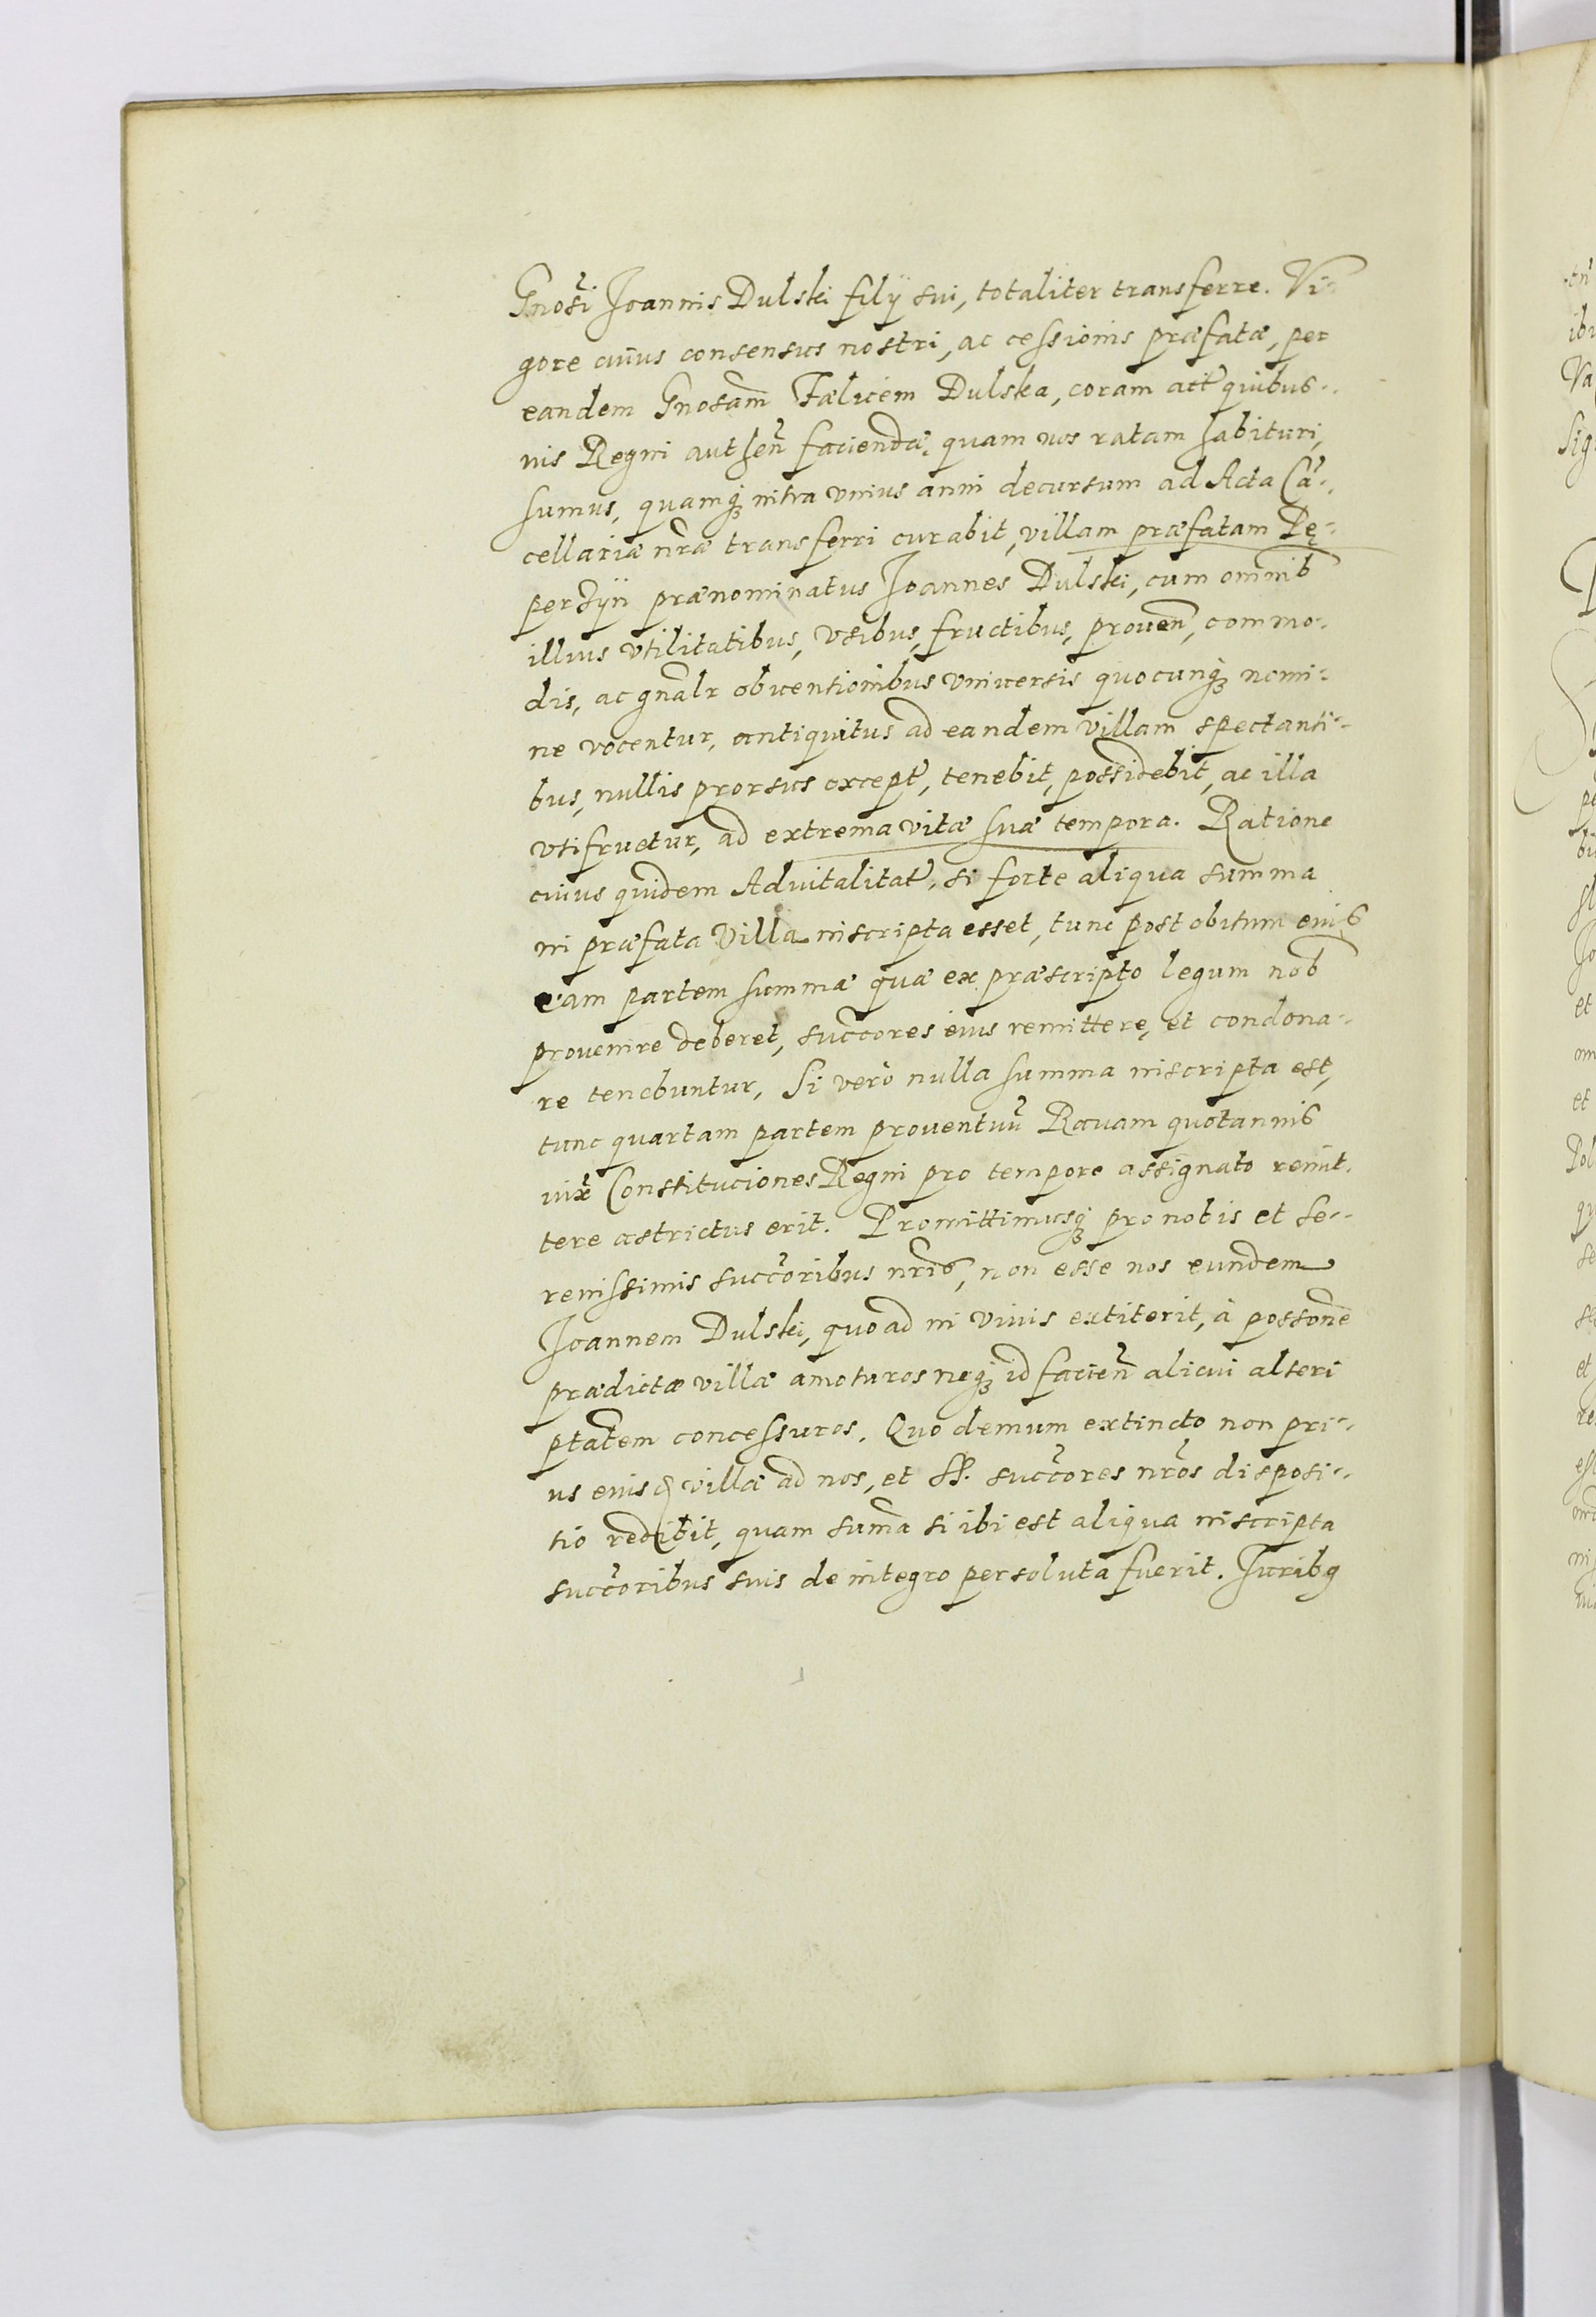 Gnosi Joannis Dulski filij sui, totaliter transferre. Vi-
gore cuius consensus nostri, ac cessionis præfatæ, per
eandem Gnosam Fælicem Dulska, coram act quibus-
uis Regni authen faciendæ, quam nos ratam habituri,
sumus, quamq intra vnius anni decursum ad Acta Cā-
cellariæ nræ transferri curabit, villam præfatam Pę-
perzÿn prænominatus Joannes Dulski, cum omnib
illius vtilitatibus, vsibus, fructibus, prouen, commo-
dis, ac gnalr obuentionibus vniuersis quocunq nomi-
ne vocentur, antiquitus ad eandem villam spectanti-
bus, nullis prorsus except, tenebit, possidebit, ac illa
vtifruetur, ad extrema vitæ suæ tempora. Ratione
cuius quidem Aduitalitat, si forte aliqua summa
in præfata Villa inscripta esset, tunc post obitum eius
eam partem summæ quæ ex præscripto legum nob
prouenire deberet, succores eius remittere, et condona-
re tenebuntur, Si verò nulla summa inscripta est,
tunc quartam partem prouentuū Rauam quotannis
iux Constituciones Regni pro tempore assignato remit-
tere astrictus erit. Promittimusq pro nobis et Se-
renissimis succoribus nris, non esse nos eundem
Joannem Dulski, quoad in viuis extiterit, à possone
prædictæ villæ amoturos neq id facien alicui alteri
ptatem concessuros. Quo demum extincto non pri-
us eius villæ ad nos, et SS. succores nros disposi-
tio redibit, quam suma si ibi est aliqua inscripta
succoribus suis de integro persoluta fuerit. Juribq